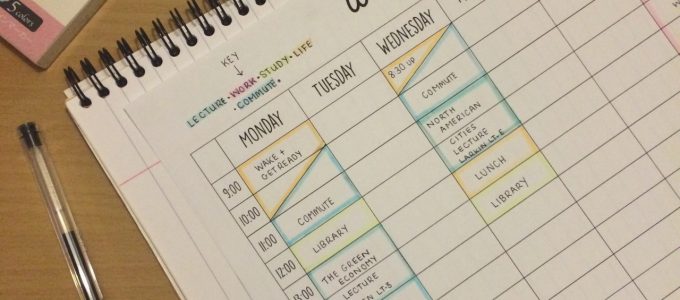 5 colors
KEY
LECTURE · WORK · STUDY · LIFE
· COMMUTE ·
MONDAY
TUESDAY
WEDNESDAY
9:00
10:00
11:00
12:00
13:00
WAKE +
GET READY
COMMUTE
LIBRARY
THE GREEN
ECONOMY
LECTURE
LARKIN LT.B
8:30 UP
COMMUTE
NORTH
AMERICAN
CITIES
LECTURE
LARKIN LT.E
LUNCH
LIBRARY